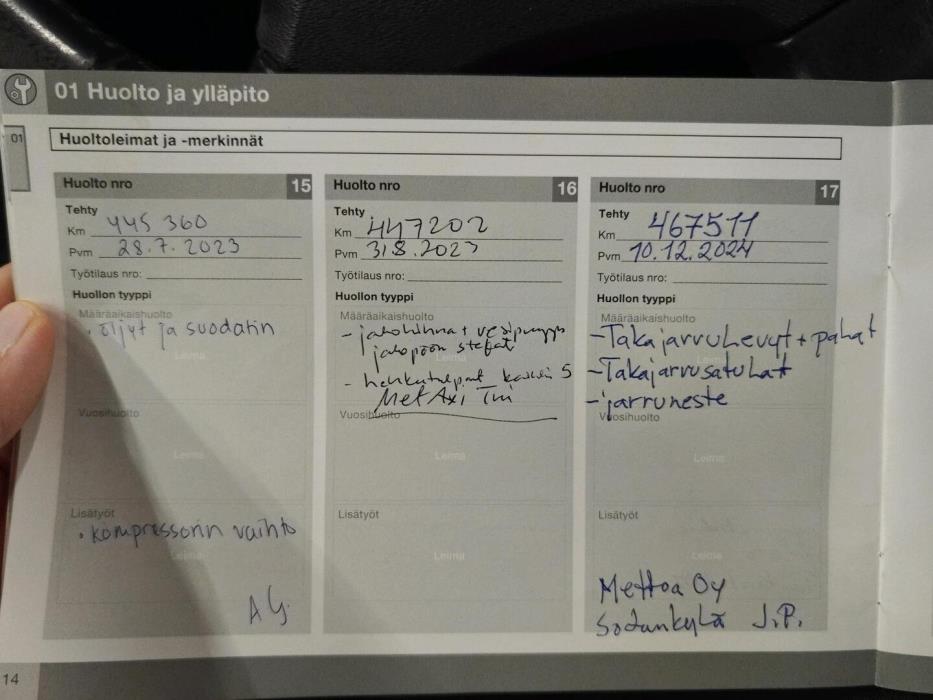 01 Huolto ja ylläpito
01
Huoltoleimat ja -merkinnät
Huolto nro 15
Tehty
Km 445 360
Pvm 28.7.2023
Työtilaus nro:
Huollon tyyppi
Määräaikaishuolto
• öljyt ja suodatin
Leima
Vuosihuolto
Leima
Lisätyöt
• kompressorin vaihto
Leima
AG
Huolto nro 16
Tehty
Km 447202
Pvm 31.8.2023
Työtilaus nro:
Huollon tyyppi
Määräaikaishuolto
- jakohihna + vesipumppu
jakopään stefat
Leima
- hehkutulpat kaikki 5
MetAxi Tmi
Vuosihuolto
Leima
Lisätyöt
Leima
Huolto nro 17
Tehty
Km 467511
Pvm 10.12.2024
Työtilaus nro:
Huollon tyyppi
Määräaikaishuolto
- Takajarrulevyt + palat
Leima
- Takajarrusatulat
- jarruneste
Vuosihuolto
Leima
Lisätyöt
Leima
Mettoa Oy
Sodankylä J.P.
14